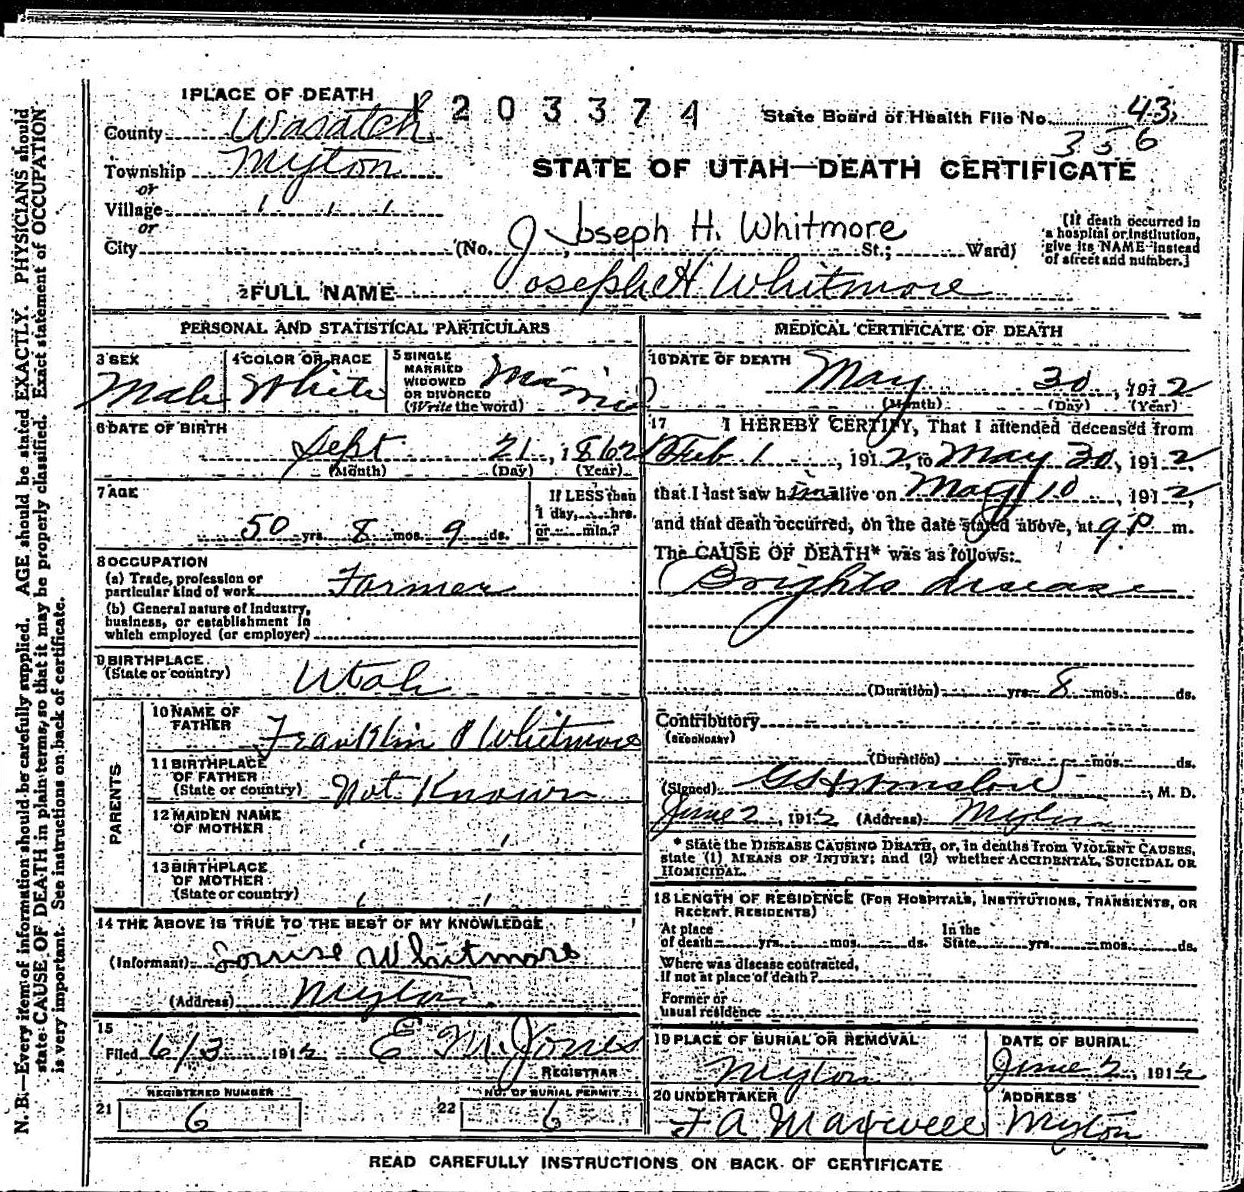 1 PLACE OF DEATH
203374
State Board of Health File No. 43
356
County Wasatch
Township Myton
or
Village
or
City
STATE OF UTAH—DEATH CERTIFICATE
(No. , St.; Ward)
Joseph H. Whitmore
(If death occurred in a hospital or institution, give its NAME instead of street and number.]
2 FULL NAME Joseph H Whitmore
PERSONAL AND STATISTICAL PARTICULARS
3 SEX
Male
4 COLOR OR RACE
White
5 SINGLE MARRIED WIDOWED OR DIVORCED
(Write the word)
6 DATE OF BIRTH
Sept 21, 1862
(Month) (Day) (Year)
7 AGE
50 yrs. 8 mos. 9 ds.
If LESS than 1 day, hrs. or min.?
8 OCCUPATION
(a) Trade, profession or particular kind of work Farmer
(b) General nature of industry, business, or establishment in which employed (or employer)
9 BIRTHPLACE
(State or country) Utah
PARENTS
10 NAME OF FATHER Franklin Whitmore
11 BIRTHPLACE OF FATHER
(State or country) Not Known
12 MAIDEN NAME OF MOTHER
13 BIRTHPLACE OF MOTHER
(State or country)
14 THE ABOVE IS TRUE TO THE BEST OF MY KNOWLEDGE
(Informant) Louise Whitmore
(Address) Myton
15
Filed 6/3 1912 E M Jones
REGISTRAR
REGISTERED NUMBER
21 6
NO. OF BURIAL PERMIT
22 6
MEDICAL CERTIFICATE OF DEATH
16 DATE OF DEATH
May 30, 1912
(Month) (Day) (Year)
17 I HEREBY CERTIFY, That I attended deceased from
Feb 1, 1912, to May 30, 1912
that I last saw him alive on May 10, 1912,
and that death occurred, on the date stated above, at 9 P m.
The CAUSE OF DEATH* was as follows:
Brights disease
(Duration) yrs. 8 mos. ds.
Contributory
(SECONDARY)
(Duration) yrs. mos. ds.
(Signed) Winslow, M. D.
June 2, 1912 (Address) Myton
* State the DISEASE CAUSING DEATH, or, in deaths from VIOLENT CAUSES,
state (1) MEANS OF INJURY; and (2) whether ACCIDENTAL, SUICIDAL OR
HOMICIDAL.
18 LENGTH OF RESIDENCE (FOR HOSPITALS, INSTITUTIONS, TRANSIENTS, OR
RECENT RESIDENTS)
At place of death yrs. mos. ds. In the State yrs. mos. ds.
Where was disease contracted,
if not at place of death?
Former or
usual residence
19 PLACE OF BURIAL OR REMOVAL
Myton
DATE OF BURIAL
June 2, 1912
20 UNDERTAKER
F A Maxwell
ADDRESS
Myton
READ CAREFULLY INSTRUCTIONS ON BACK OF CERTIFICATE
N. B.—Every item of information should be carefully supplied. AGE should be stated EXACTLY. PHYSICIANS should
state CAUSE OF DEATH in plain terms, so that it may be properly classified. Exact statement of OCCUPATION
is very important. See instructions on back of certificate.